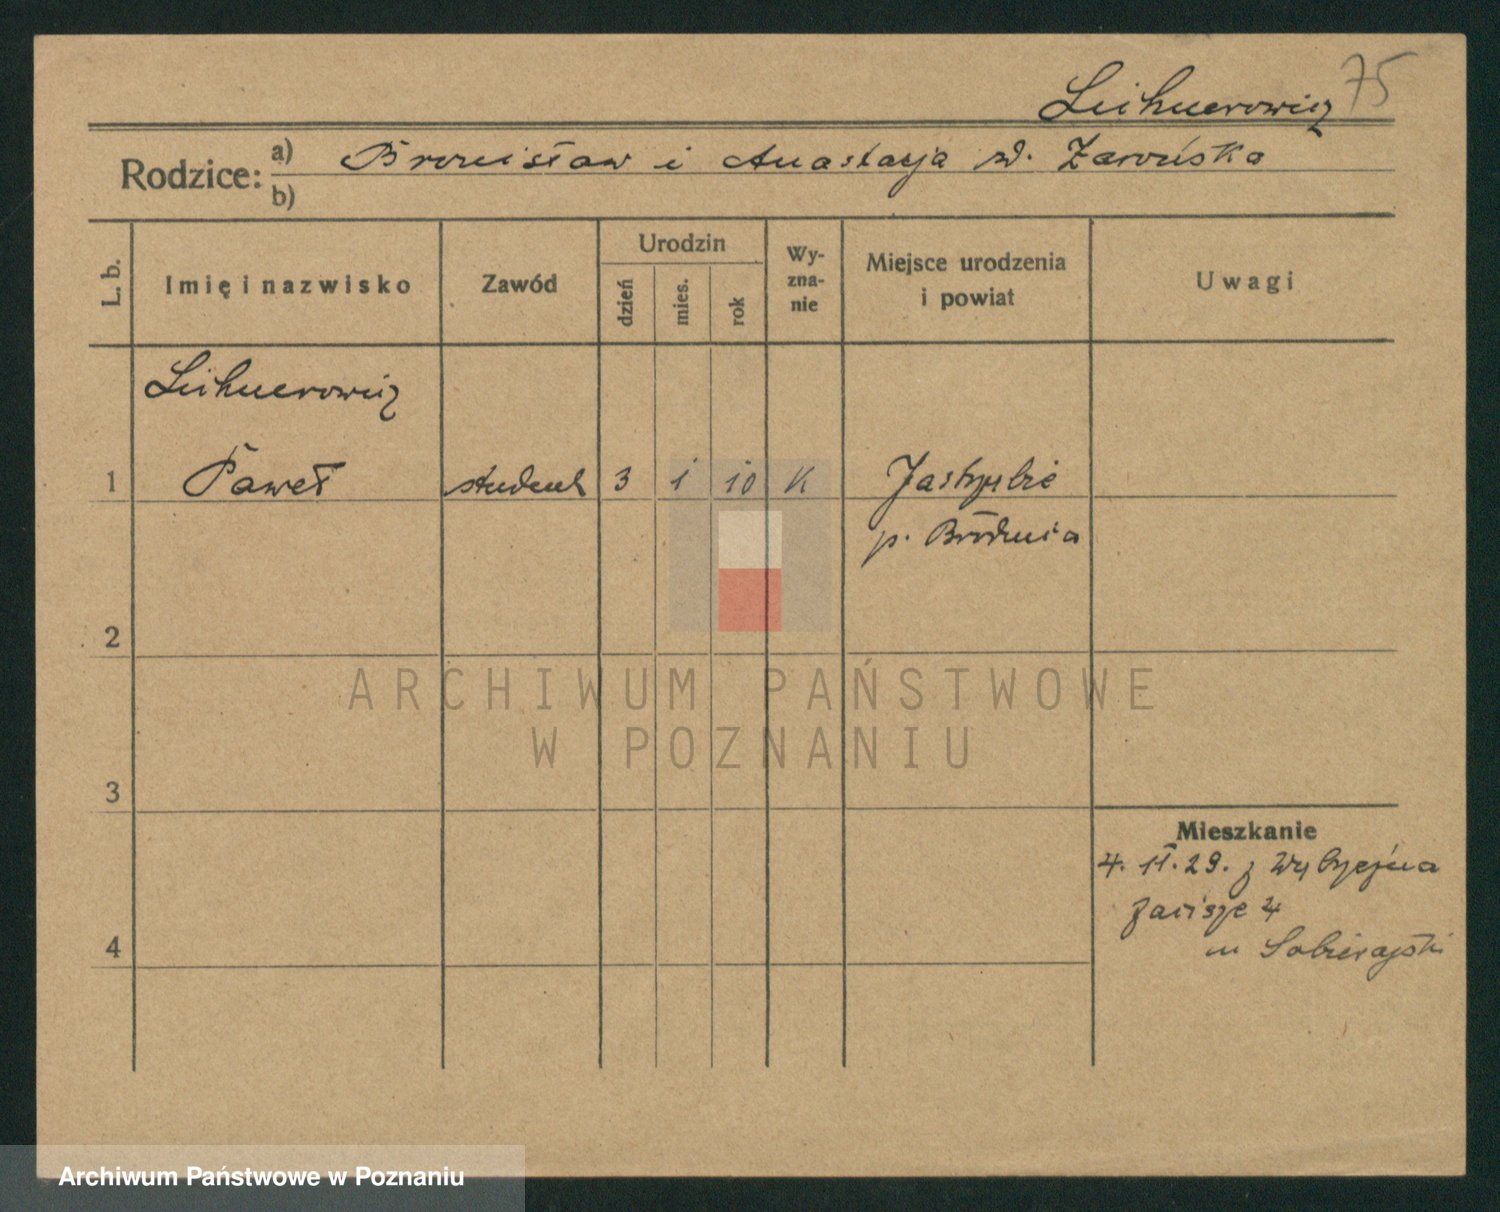 75
Rodzice:
a) Bronisław i Anastazja
b)
L. b.
Imię i nazwisko
Zawód
Urodzin
dzień
mies.
rok
Wy-
zna-
nie
Miejsce urodzenia
i powiat
Uwagi
1
Paweł
student
3
1
10
K
Jastrzębie
p. Brodnica
2
3
4
Mieszkanie
4. 11. 29. z
Zacisze 4
m Sobierajski
ARCHIWUM PAŃSTWOWE
W POZNANIU
Archiwum Państwowe w Poznaniu